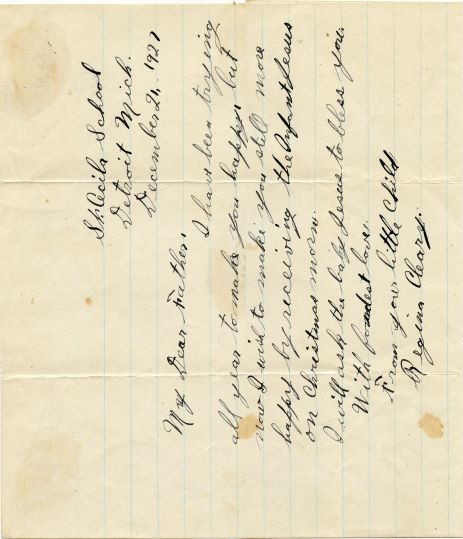 St. Cecila School
Detroit Mich.
December 21, 1927
My Dear Father,
I have been trying
all year to make you happy, but
now I wish to make you still more
happy by receiving the Infant Jesus
on Christmas morn.
I will ask the baby Jesus to bless you.
With fondest love.
From your little child
Regina Cleary.